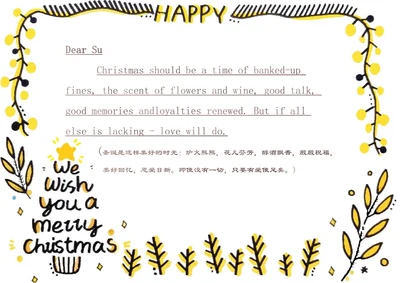 HAPPY
Dear Su
Christmas should be a time of banked-up
fines, the scent of flowers and wine, good talk,
good memories andloyalties renewed. But if all
else is lacking - love will do.
(圣诞是这样美好的时光：炉火熊熊，花儿芬芳，醇酒飘香，殷殷祝福，
美好回忆，恩爱日新。即便没有一切，只要有爱便足矣。)
We
Wish
you a
merry
Christmas